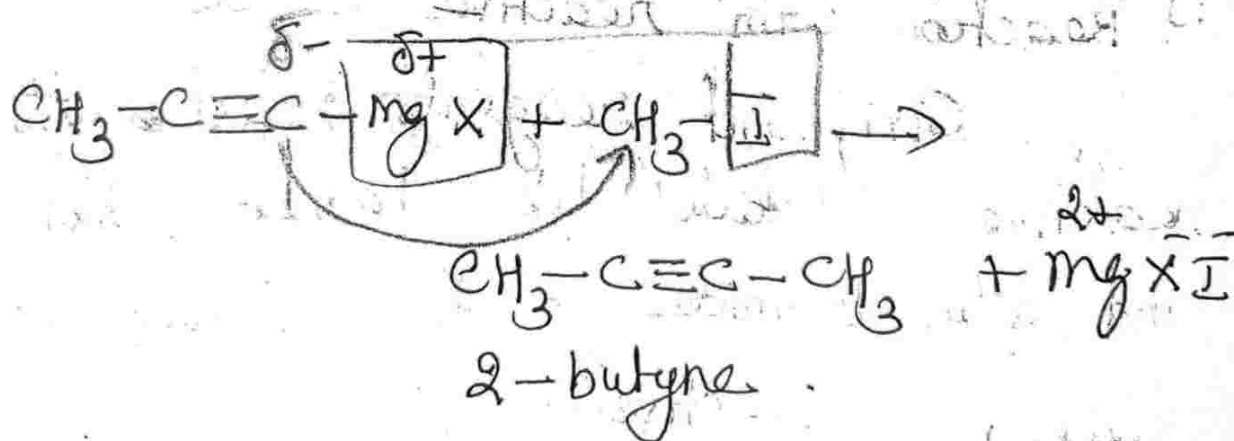 δ- δ+
CH₃-C≡C-Mg X + CH₃-I ⟶
CH₃-C≡C-CH₃ + Mg²⁺X⁻I⁻
2-butyne.